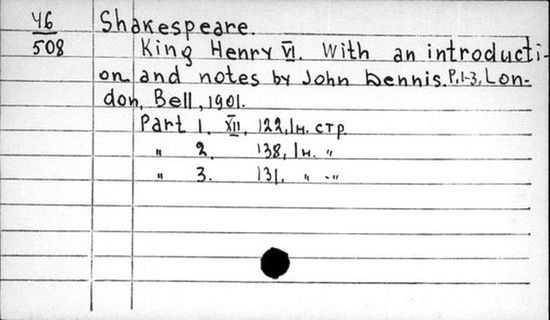 46 Shakespeare.
508 King Henry VI. With an introducti-
on and notes by John Dennis. P.1-3, Lon-
don, Bell, 1901.
Part 1. XII, 122, 1н. стр
" 2. 138, 1н. "
" 3. 131, " -"